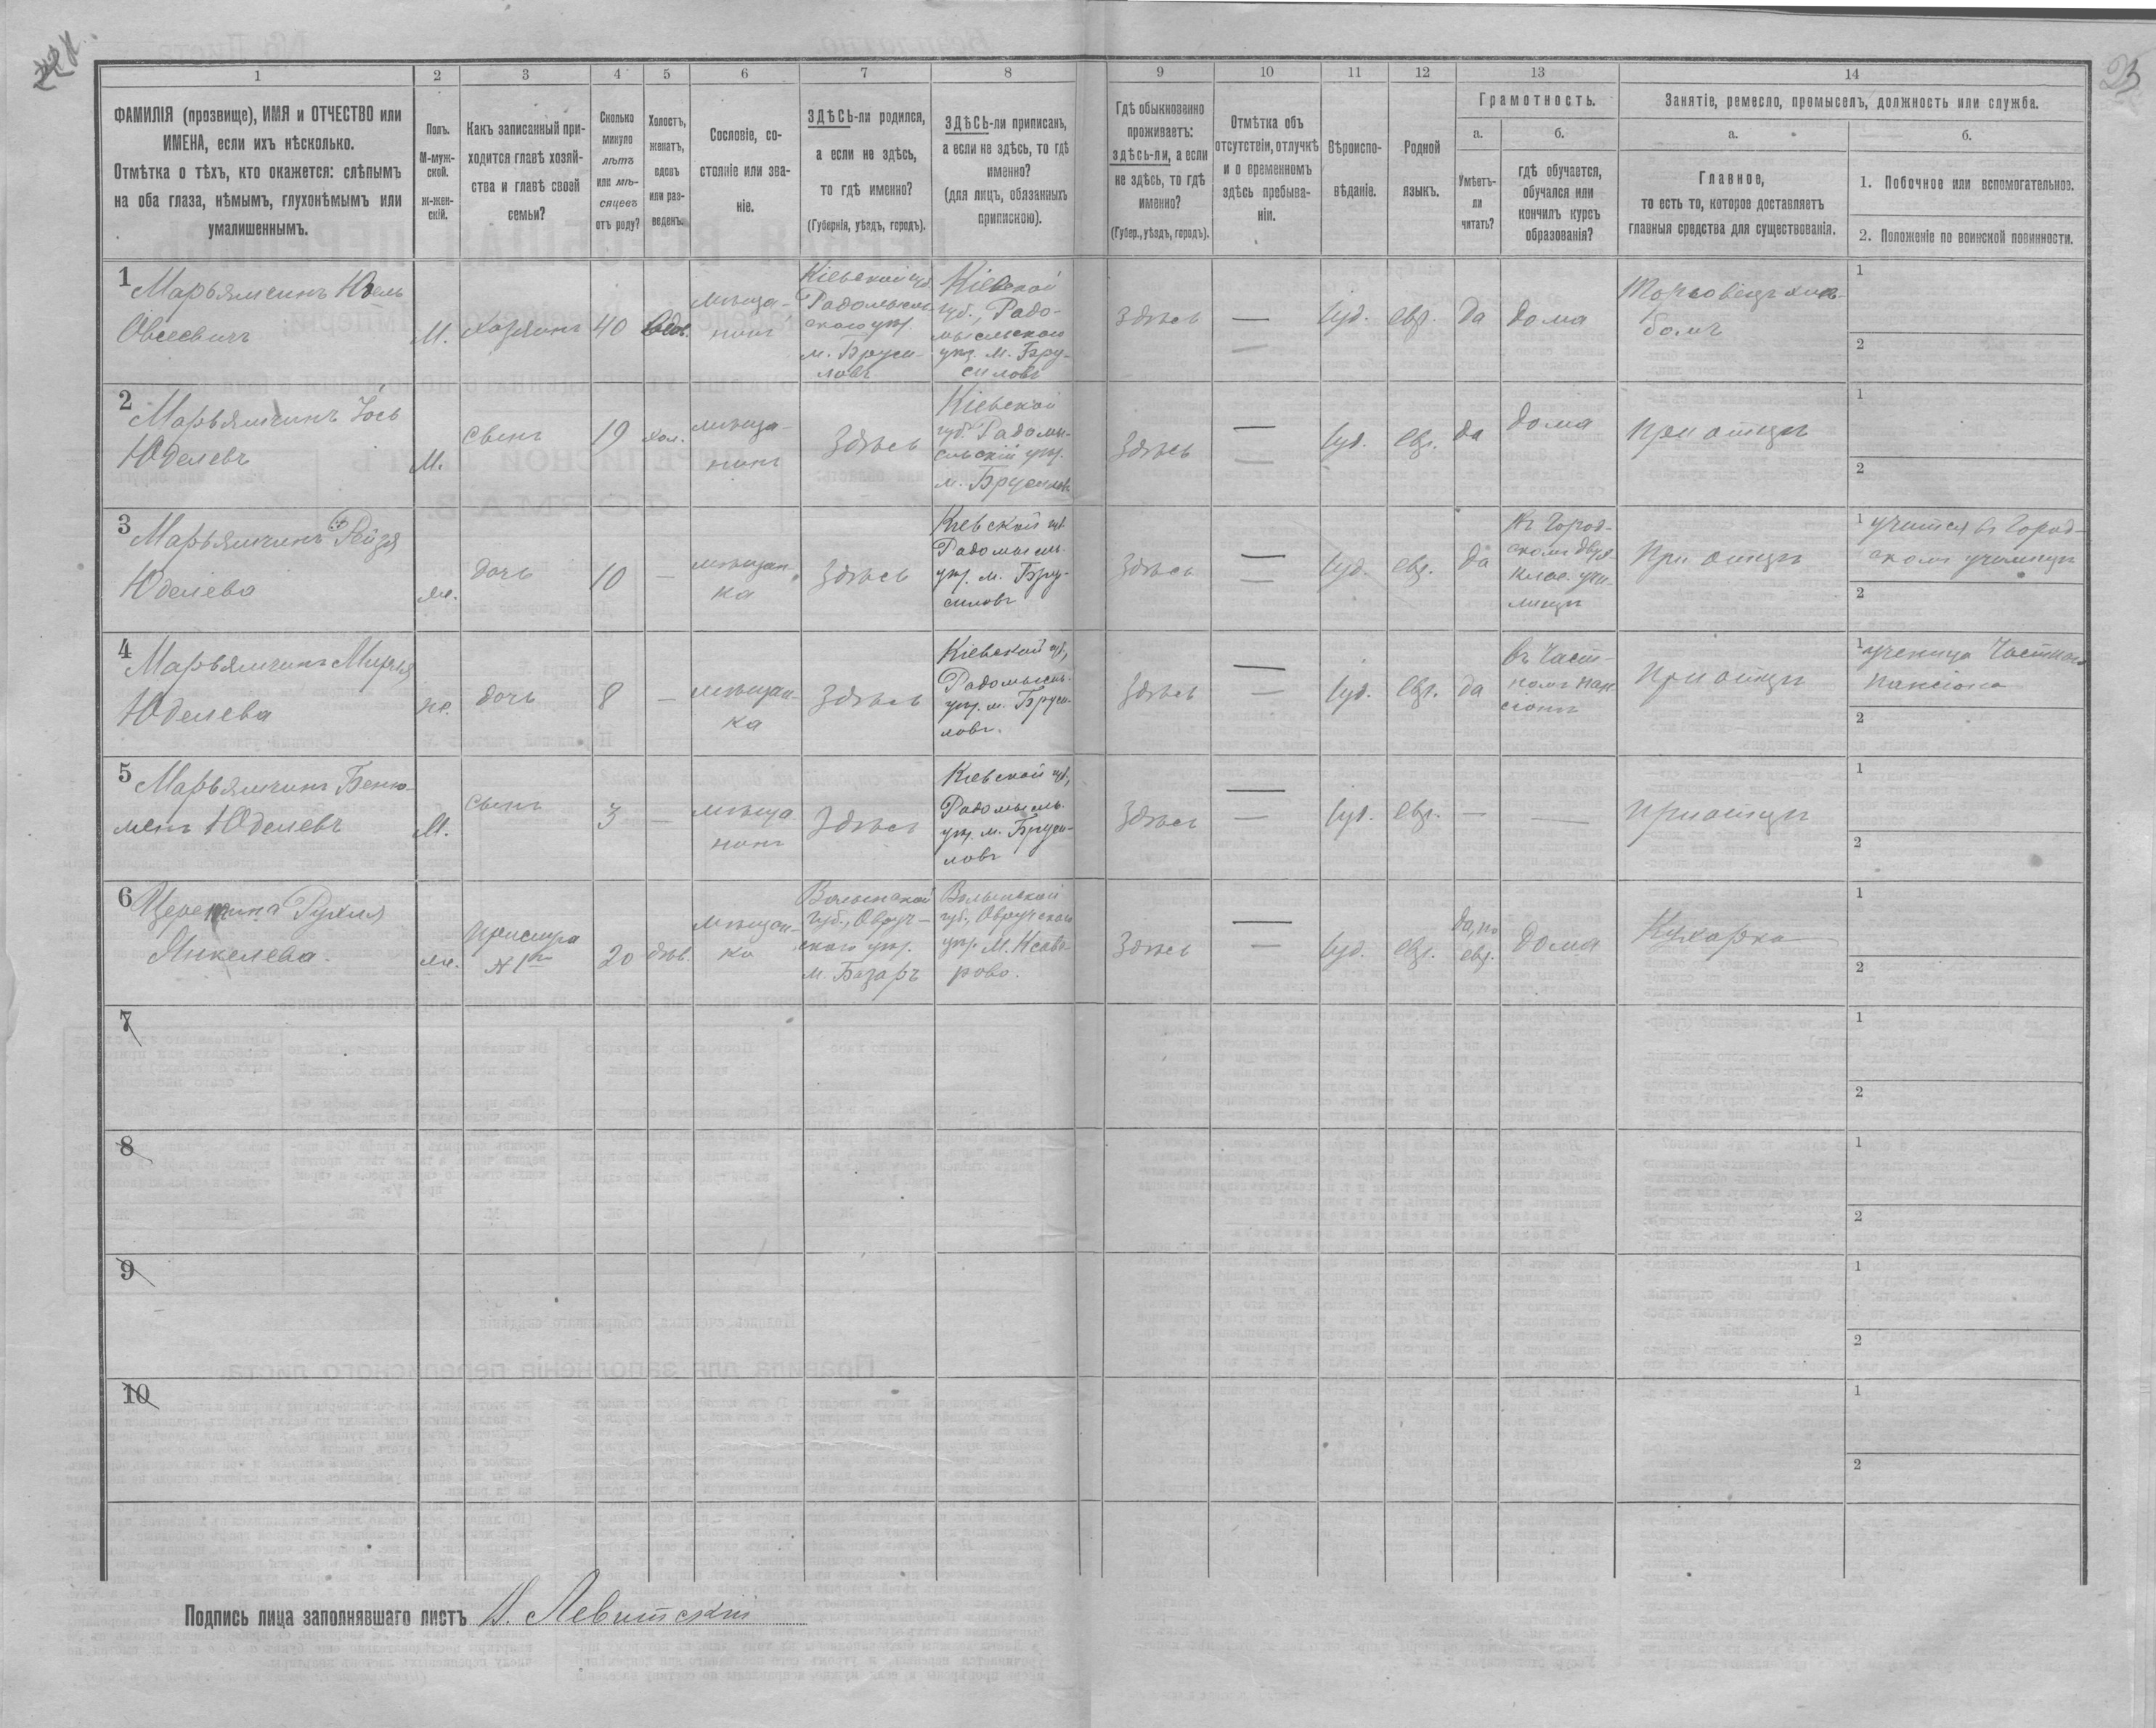 1
2
3
4
5
6
7
8
9
10
11
12
13
14
ФАМИЛІЯ (прозвище), ИМЯ и ОТЧЕСТВО или
ИМЕНА, если ихъ нѣсколько.
Отмѣтка о тѣхъ, кто окажется: слѣпымъ
на оба глаза, нѣмымъ, глухонѣмымъ или
умалишеннымъ.
Полъ.
М-муж-
ской.
Ж-жен-
скій.
Какъ записанный при-
ходится главѣ хозяй-
ства и главѣ своей
семьи?
Сколько
минуло
лѣтъ
или мѣ-
сяцевъ
отъ роду?
Холостъ,
женатъ,
вдовъ
или раз-
веденъ.
Сословіе, со-
стояніе или зва-
ніе.
ЗДѢСЬ-ли родился,
а если не здѣсь,
то гдѣ именно?
(Губернія, уѣздъ, городъ).
ЗДѢСЬ-ли приписанъ,
а если не здѣсь, то гдѣ
именно?
(для лицъ, обязанныхъ
припискою).
Гдѣ обыкновенно
проживаетъ:
здѣсь-ли, а если
не здѣсь, то гдѣ
именно?
(Губер., уѣздъ, городъ).
Отмѣтка объ
отсутствіи, отлучкѣ
и о временномъ
здѣсь пребыва-
ніи.
Вѣроиспо-
вѣданіе.
Родной
языкъ.
Грамотность.
а.
Умѣетъ-
ли
читать?
б.
гдѣ обучается,
обучался или
кончилъ курсъ
образованія?
Занятіе, ремесло, промыселъ, должность или служба.
а.
Главное,
то есть то, которое доставляетъ
главныя средства для существованія.
б.
1. Побочное или вспомогательное.
2. Положеніе по воинской повинности.
1
Марьямчинъ Юдель
Овсеевичъ
М.
Хозяинъ
40
Вдов.
мѣща-
нинъ
Кіевской губ.
Радомысль-
скаго уѣз.
м. Бруси-
ловъ
Кіевской
губ., Радо-
мысльскаго
уѣз. м. Бру-
силовъ
Здѣсь
—
—
Іуд.
евр.
Да
Дома
Торговецъ хлѣ-
бомъ
1
2
2
Марьямчинъ Іось
Юделевъ
М.
Сынъ
19
хол.
мѣща-
нинъ
Здѣсь
Кіевской
губ. Радомы-
сльскій уѣз.
м. Брусиловъ
Здѣсь
—
—
Іуд.
евр.
да
Дома
При отцѣ
1
2
3
Марьямчинъ Рейзя
Юделева
ж.
дочь
10
—
мѣщан-
ка
Здѣсь
Кіевской губ.
Радомысль.
уѣз. м. Бру-
силовъ
Здѣсь
—
—
Іуд.
евр.
да
Въ Город-
скомъ двух
клас. учи-
лищѣ
При отцѣ
1 учится въ Город-
скомъ училищѣ
2
4
Марьямчинъ Мирля
Юделева
ж.
дочь
8
—
мѣщан-
ка
Здѣсь
Кіевской губ,
Радомысль.
уѣз. м. Бруси-
ловъ.
Здѣсь
—
—
Іуд.
евр.
да
въ Част-
номъ пан-
сіонѣ
При отцѣ
1 ученица Частнаго
пансіона
2
5
Марьямчинъ Беню-
менъ Юделевъ
М.
Сынъ
3
—
мѣща
нинъ
Здѣсь
Кіевской губ,
Радомысль.
уѣз. м. Бруси-
ловъ
Здѣсь
—
—
Іуд.
евр.
—
—
При отцѣ
1
2
6
Рухля
Янкелева.
ж.
Прислуга
№ 1го
20
дѣв.
мѣщан-
ка
Волынской
губ., Овруч-
скаго уѣз.
м. Базаръ
Волынской
губ., Овручскаго
уѣз. м.
Здѣсь
—
—
Іуд.
евр.
да, по
евр.
Дома
Кухарка
1
2
7
1
2
8
1
2
9
1
2
10
1
2
Подпись лица заполнявшаго листъ Левитскій